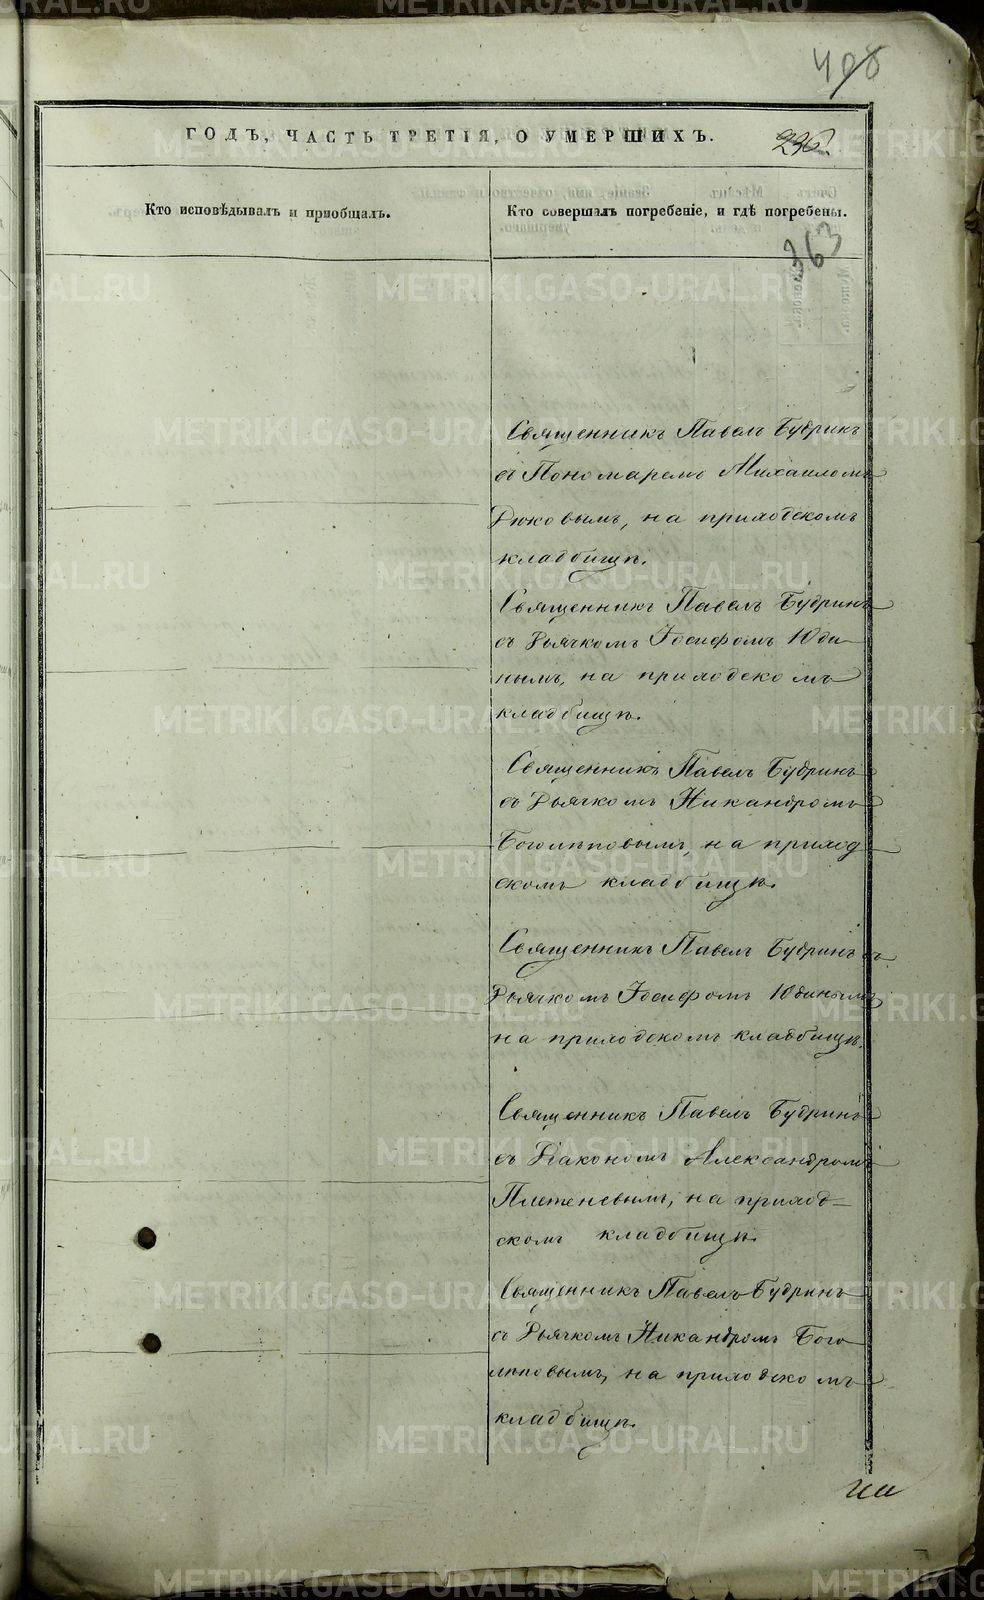 408
ГОДЪ, ЧАСТЬ ТРЕТІЯ, О УМЕРШИХЪ.
236.
Кто исповѣдывалъ и пріобщалъ.
Кто совершалъ погребеніе, и гдѣ погребены.
363
Священникъ Павелъ Будринъ
съ Пономаремъ Михаиломъ
Дюковымъ, на приходскомъ
кладбищѣ.
Священникъ Павелъ Будринъ
съ Дьячкомъ Іосифомъ Юди-
нымъ, на приходскомъ
кладбищѣ.
Священникъ Павелъ Будринъ
съ Дьячкомъ Никандромъ
Боголѣповымъ, на приход
скомъ кладбищѣ.
Священникъ Павелъ Будринъ съ
Дьячкомъ Іосифомъ Юдинымъ
на приходскомъ кладбищѣ.
Священникъ Павелъ Будринъ
съ Діакономъ Александромъ
Плетеневымъ, на приход-
скомъ кладбищѣ.
Священникъ Павелъ Будринъ
съ Дьячкомъ Никандромъ Бого
лѣповымъ, на приходскомъ
кладбищѣ.
METRIKI.GASO-URAL.RU